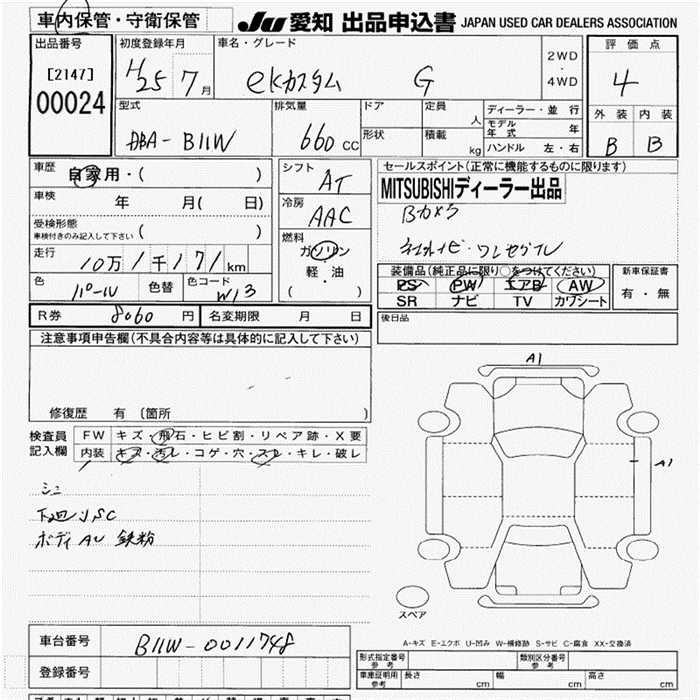 車内保管・守衛保管
JU愛知 出品申込書 JAPAN USED CAR DEALERS ASSOCIATION
出品番号
[2147]
00024
初度登録年月
H25 7月
車名・グレード
eKカスタム G
2WD
・
4WD
評価点
4
外装 内装
B B
型式
DBA-B11W
排気量
660 CC
ドア
形状
定員 人
積載 kg
ディーラー・並行
モデル年式 年
ハンドル 左・右
車歴 自家用・( )
車検 年 月( 日)
受検形態
車検付きのみ記入して下さい ( )
走行 10万1千171km
色 パール 色替 色コード W13
シフト AT
冷房 AAC
燃料
ガソリン
軽・油
( )
セールスポイント(正常に機能するものに限ります)
MITSUBISHIディーラー出品
Bカメラ
装備品(純正品に限り○をつけてください)
PS PW エアB AW
SR ナビ TV カワシート
新車保証書
有・無
R券 8060円 名変期限 月 日
後日品
注意事項申告欄(不具合内容等は具体的に記入して下さい)
修復歴 有 (箇所 )
検査員記入欄
FW キズ・飛石・ヒビ割・リペア跡・X要
内装 キズ・汚レ・コゲ・穴・スレ・キレ・破レ
下廻りSC
ボディAU 鉄粉
A1
A1
スペア
A-キズ E-エクボ U-凹み W-補修跡 S-サビ C-腐食 XX-交換済
車台番号 B11W-0011748
登録番号
形式指定番号 参考 類別区分番号 参考
車庫証明用 参考 長さ cm 幅 cm 高さ cm